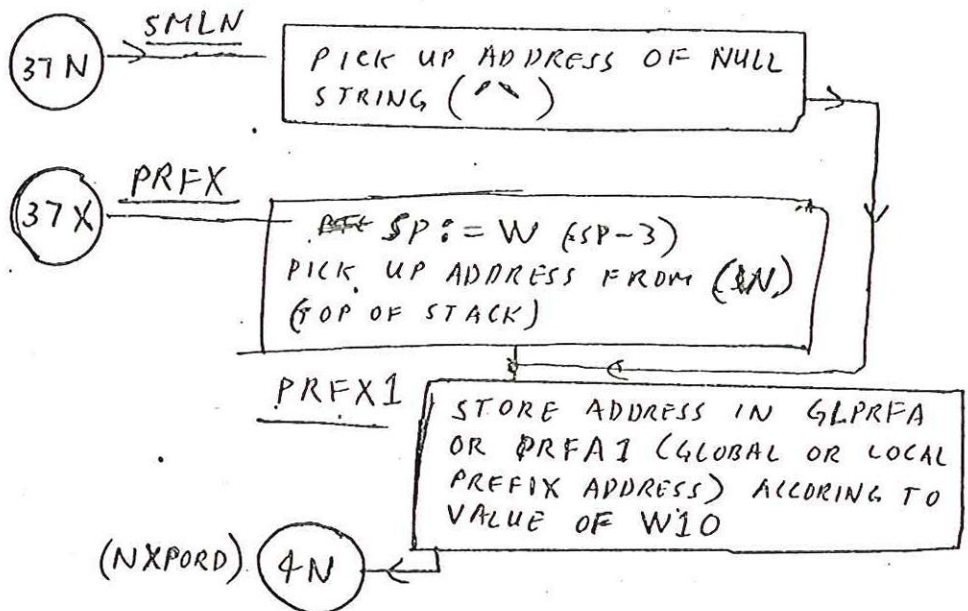 SMLN
37N
PICK UP ADDRESS OF NULL
STRING ( )
PRFX
37X
SP := W (SP-3)
PICK UP ADDRESS FROM
(TOP OF STACK)
PRFX1
STORE ADDRESS IN GLPRFA
OR PRFA1 (GLOBAL OR LOCAL
PREFIX ADDRESS) ACCORING TO
VALUE OF W10
(NXPORD) 4N